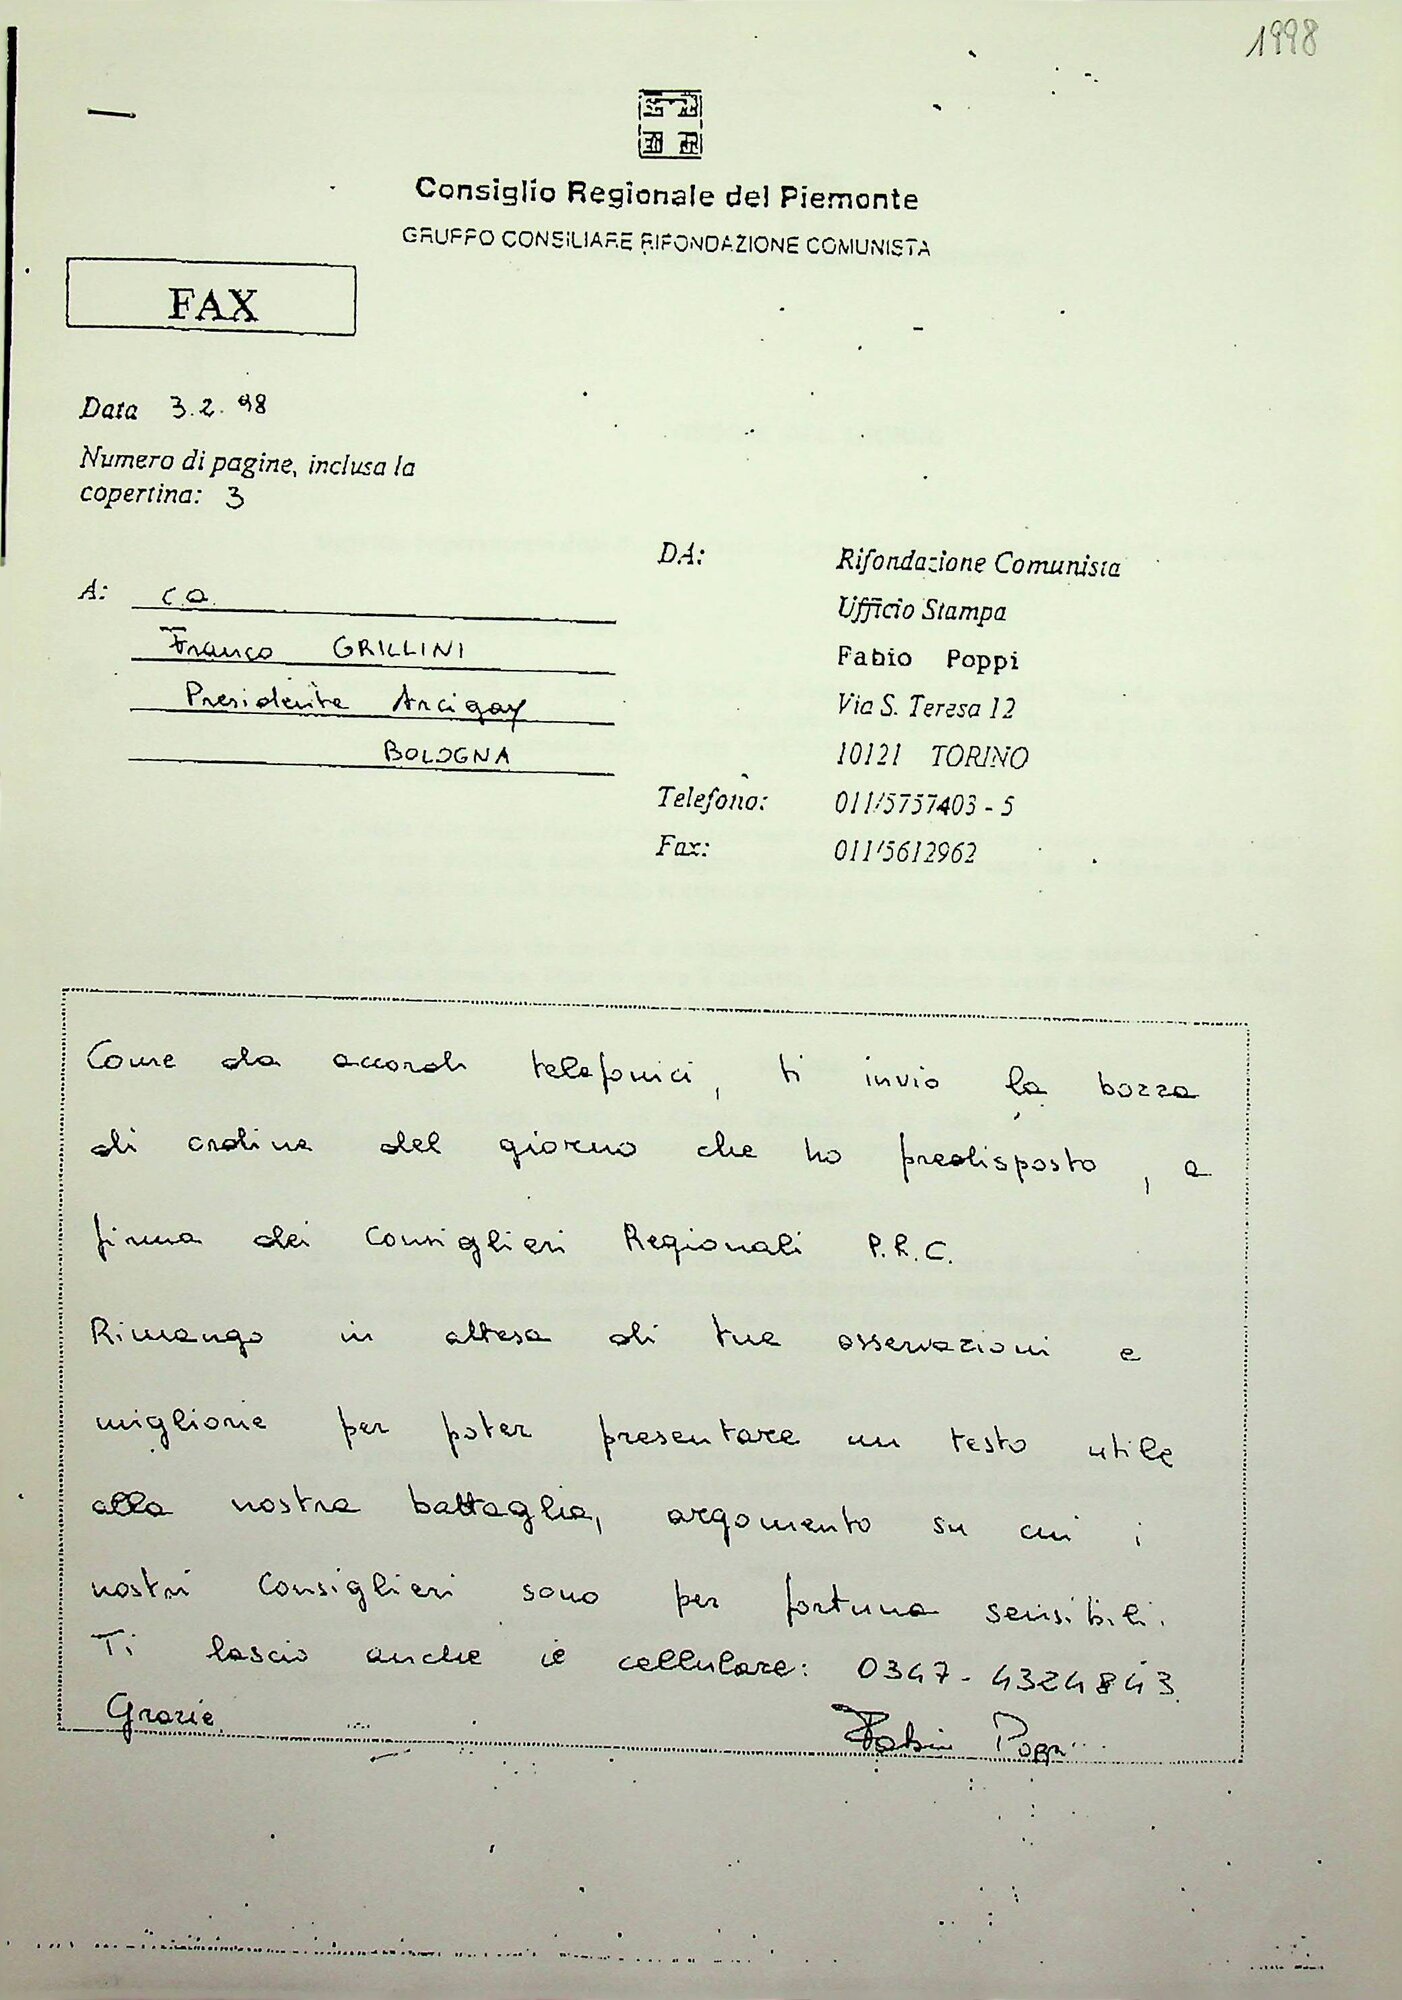 1998
Consiglio Regionale del Piemonte
GRUPPO CONSILIARE RIFONDAZIONE COMUNISTA
FAX
Data 3.2.98
Numero di pagine, inclusa la
copertina: 3
A: c.a.
Franco GRILLINI
Presidente Arcigay
BOLOGNA
DA: Rifondazione Comunista
Ufficio Stampa
Fabio Poppi
Via S. Teresa 12
10121 TORINO
Telefono: 011/5757403 - 5
Fax: 011/5612962
Come da accordi telefonici, ti invio la bozza
di ordine del giorno che ho predisposto, a
firma dei Consiglieri Regionali P.R.C.
Rimango in attesa di tue osservazioni e
migliorie per poter presentare un testo utile
alla nostra battaglia, argomento su cui i
nostri Consiglieri sono per fortuna sensibili.
Ti lascio anche il cellulare: 0347-4324843.
Grazie.
Fabio Poppi